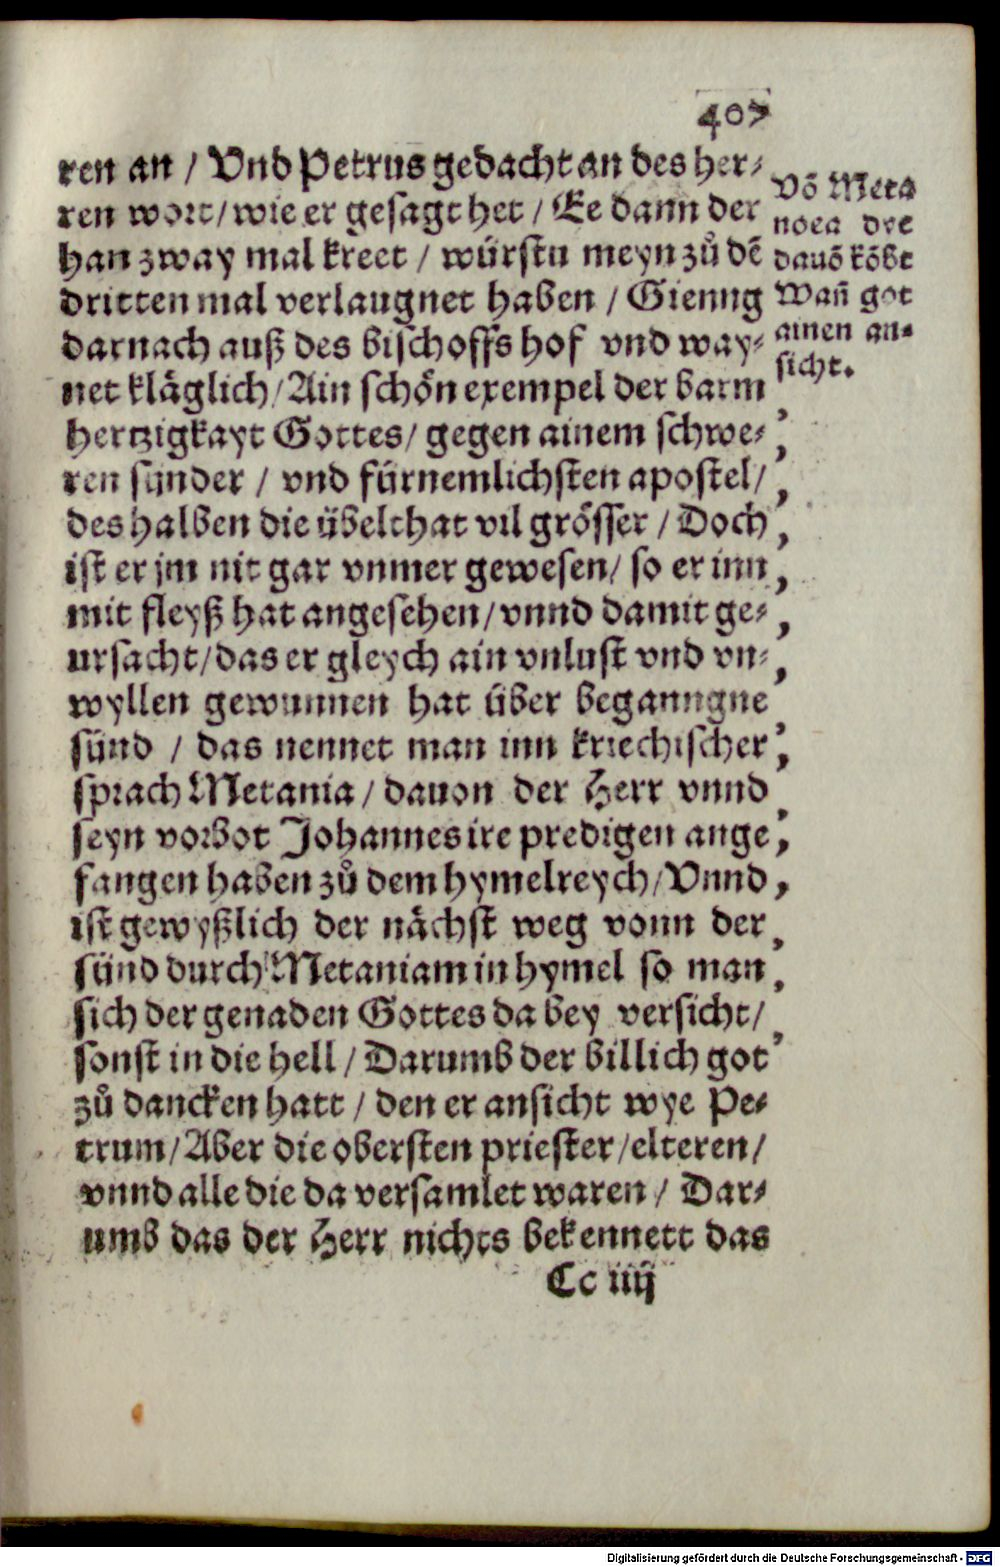 407
ren an / Vnd Petrus gedacht an des her⸗
ren wort / wie er gesagt het / Ee dann der
han zway mal kreet / würstu meyn zů dē
dritten mal verlaugnet haben / Gienng
darnach auß des bischoffs hof vnd way⸗
net kläglich / Ain schön exempel der barm
hertzigkayt Gottes / gegen ainem schwe⸗
ren sünder / vnd fürnemlichsten apostel /
des halben die übelthat vil grösser / Doch
ist er jm nit gar vnmer gewesen / so er inn
mit fleyß hat angesehen / vnnd damit ge⸗
ursacht / das er gleych ain vnlust vnd vn⸗
wyllen gewunnen hat über beganngne
sünd / das nennet man inn kriechischer
sprach Metania / dauon der Herr vnnd
seyn vorbot Johannes ire predigen ange
fangen haben zů dem hymelreych / Vnnd
ist gewyßlich der nächst weg vonn der
sünd durch Metaniam in hymel so man
sich der genaden Gottes da bey versicht /
sonst in die hell / Darumb der billich got
zů dancken hatt / den er ansicht wye Pe⸗
trum / Aber die obersten priester / elteren /
vnnd alle die da versamlet waren / Dar⸗
umb das der Herr nichts bekennett das
Cc iiij
Vō Meta
noea vre
dauō kōbt
Wañ got
ainen an⸗
sicht.
Digitalisierung gefördert durch die Deutsche Forschungsgemeinschaft - DFG